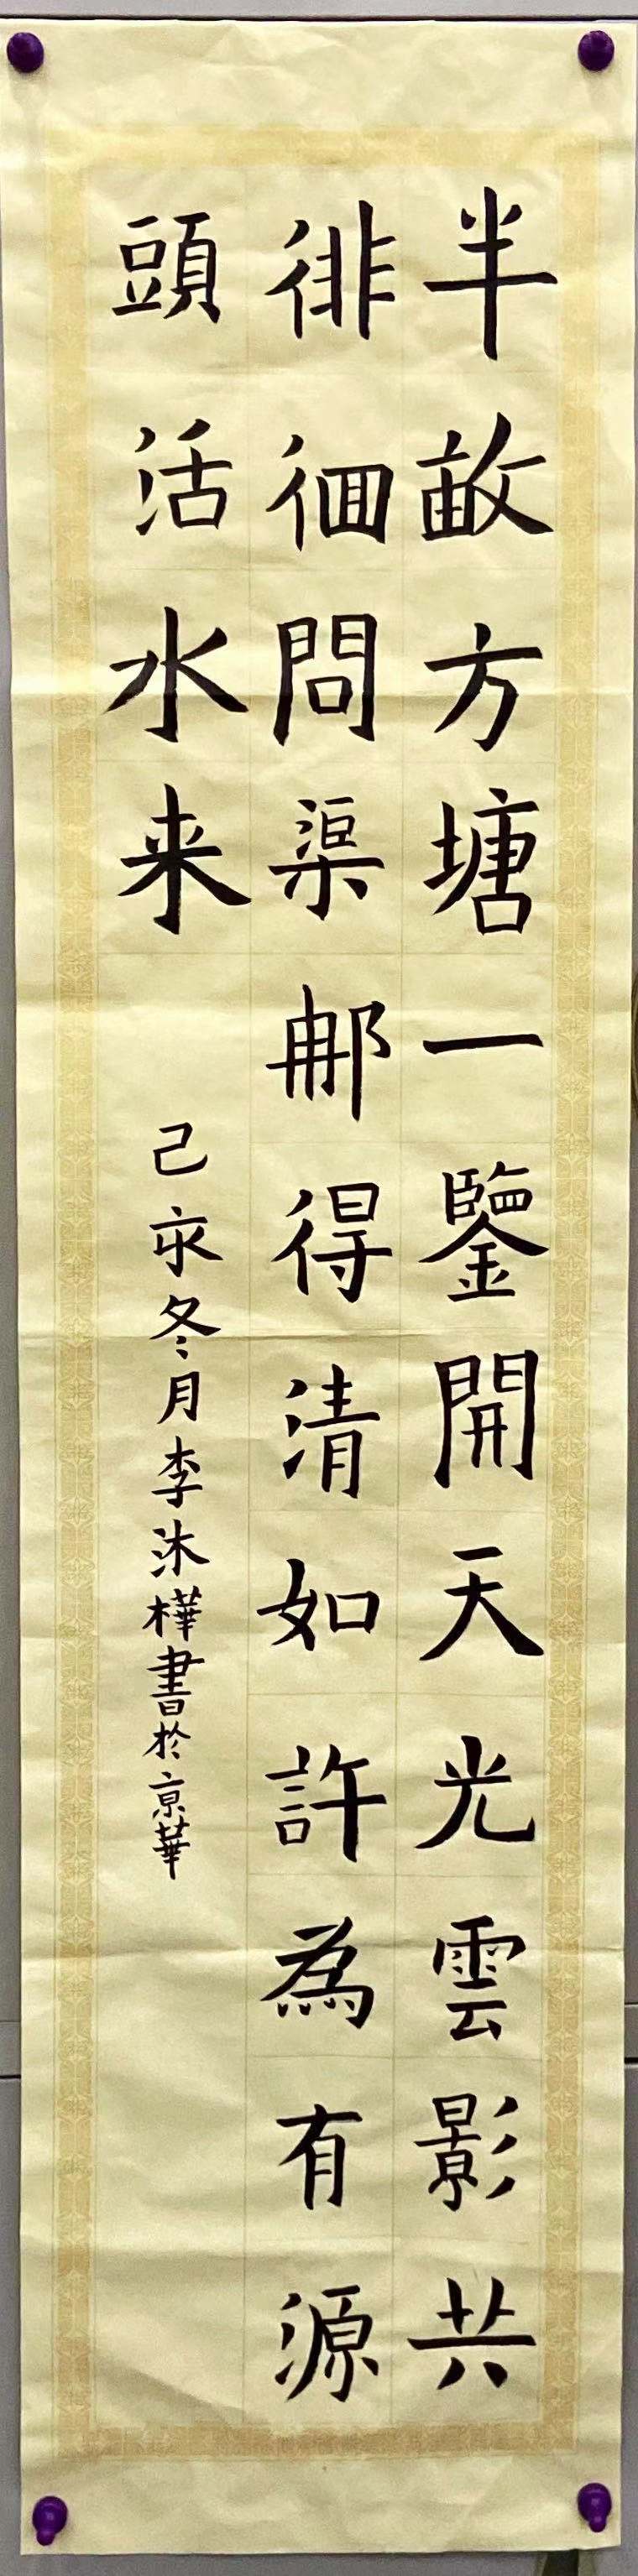 半畝方塘一鑒開天光雲影共
徘徊問渠那得清如許為有源
頭活水来
己亥冬月李沐樺書於京華